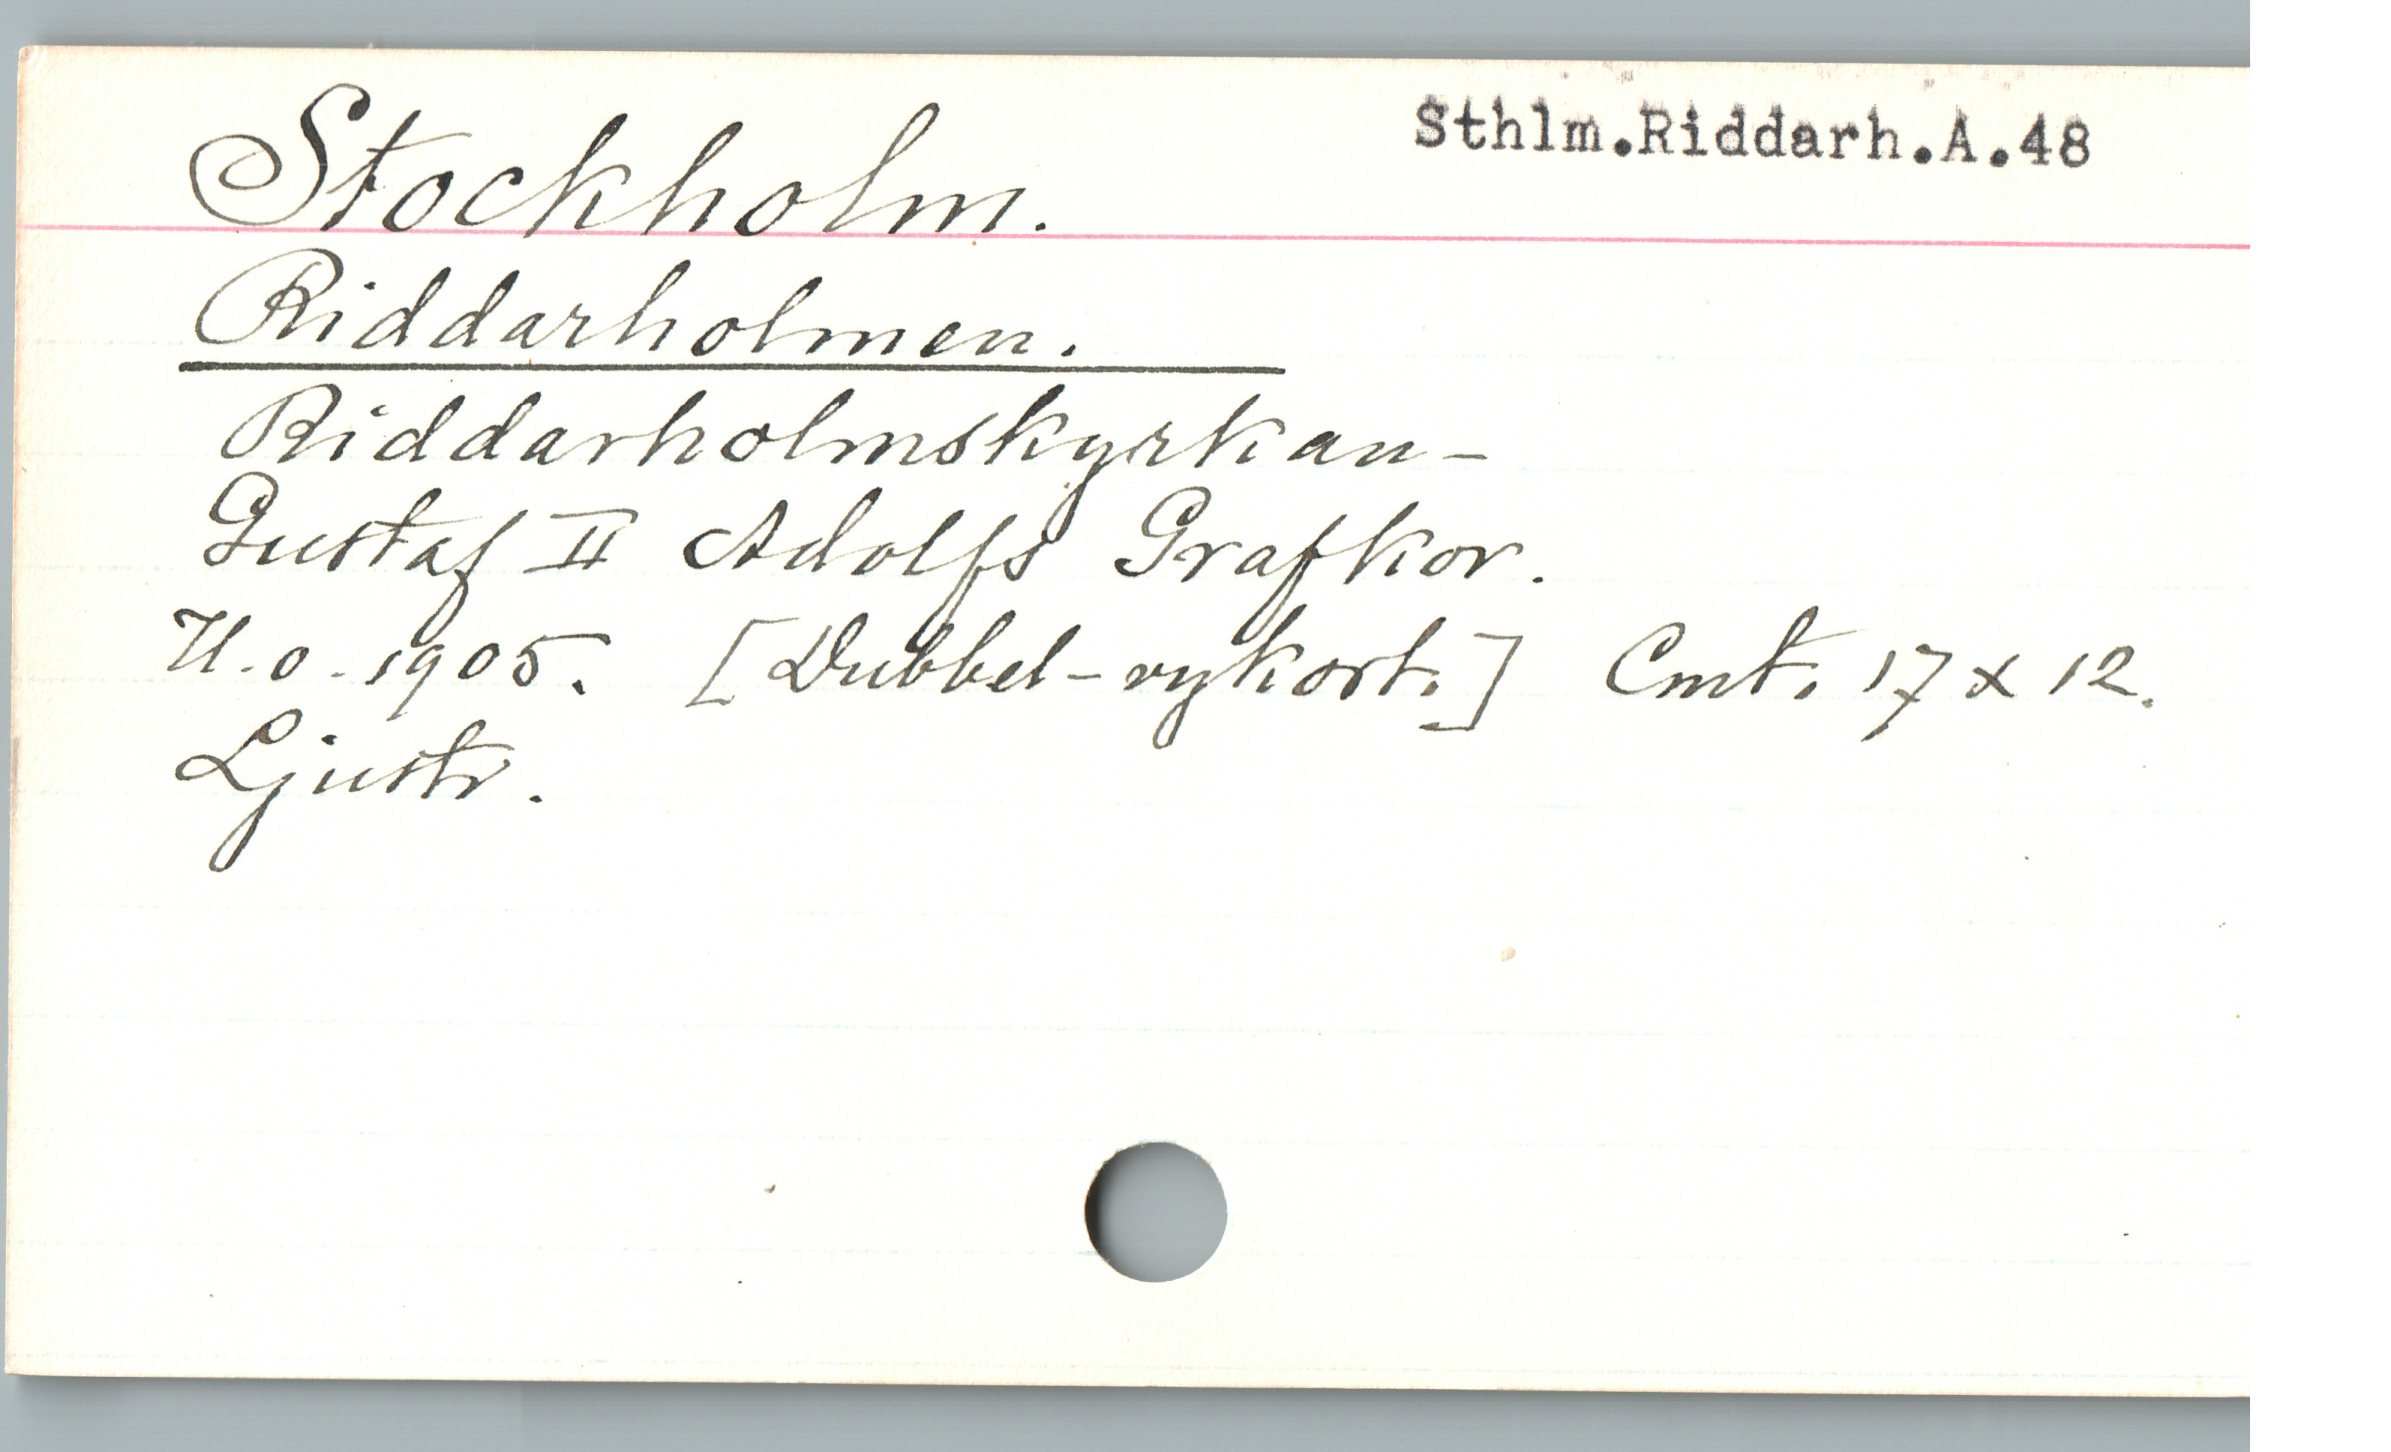 Sthlm.Riddarh.A.48
Stockholm.
Riddarholmen.
Riddarholmskyrkan-
Gustaf II Adolfs Grafkor.
U.o. 1905. [Dubbel-vykort.] Cmt. 17 x 12.
Ljustr.